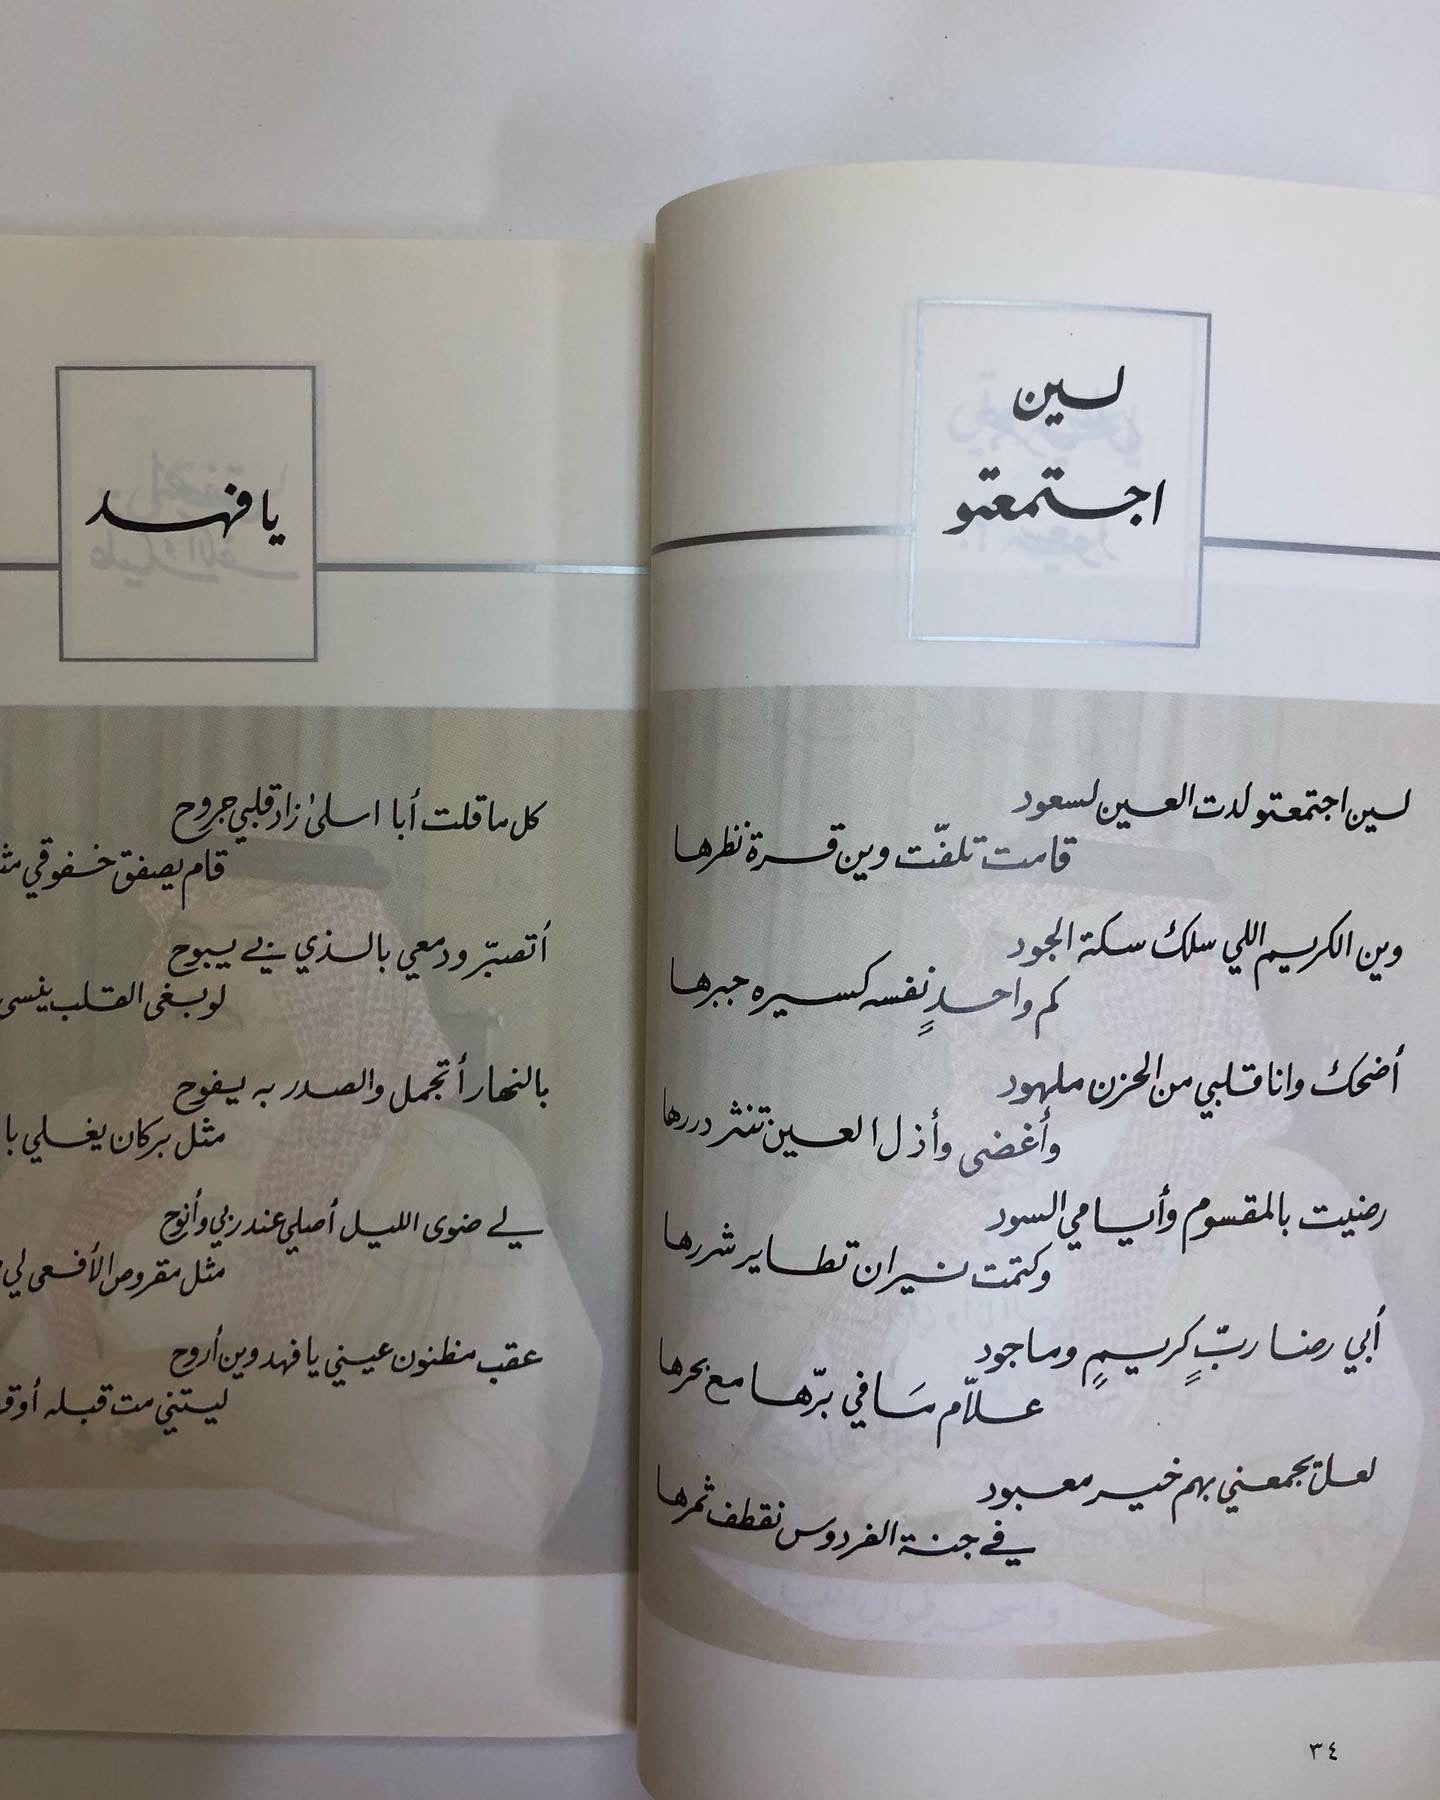 لين
اجتمعتو
لين اجتمعتو لدت العين لسعود
قامت تلفّت وين قرة نظرها
وين الكريم اللي سلك سكة الجود
كم واحدٍ نفسه كسيره جبرها
أضحك وانا قلبي من الحزن ملهود
وأغضى وأذل العين تنثر دررها
رضيت بالمقسوم وأيامي السود
وكتمت نيران تطاير شررها
أبي رضا ربٍّ كريمٍ وماجود
علاّم مَا في برّها مع بحرها
لعل يجمعني بهم خير معبود
في جنة الفردوس نقطف ثمرها
٣٤
يا فهد
كل ما قلت أبا اسلىٰ زاد قلبي جروح
قام يصفق خفوقي
أتصبّر ودمعي بالذي بي يبوح
لو بغى القلب ينسى
بالنهار أتجمل والصدر به يفوح
مثل بركان يغلي
لي ضوى الليل أصلي عند ربي وأنوح
مثل مقروص الأفعى لي
عقب مظنون عيني يا فهد وين أروح
ليتني مت قبله